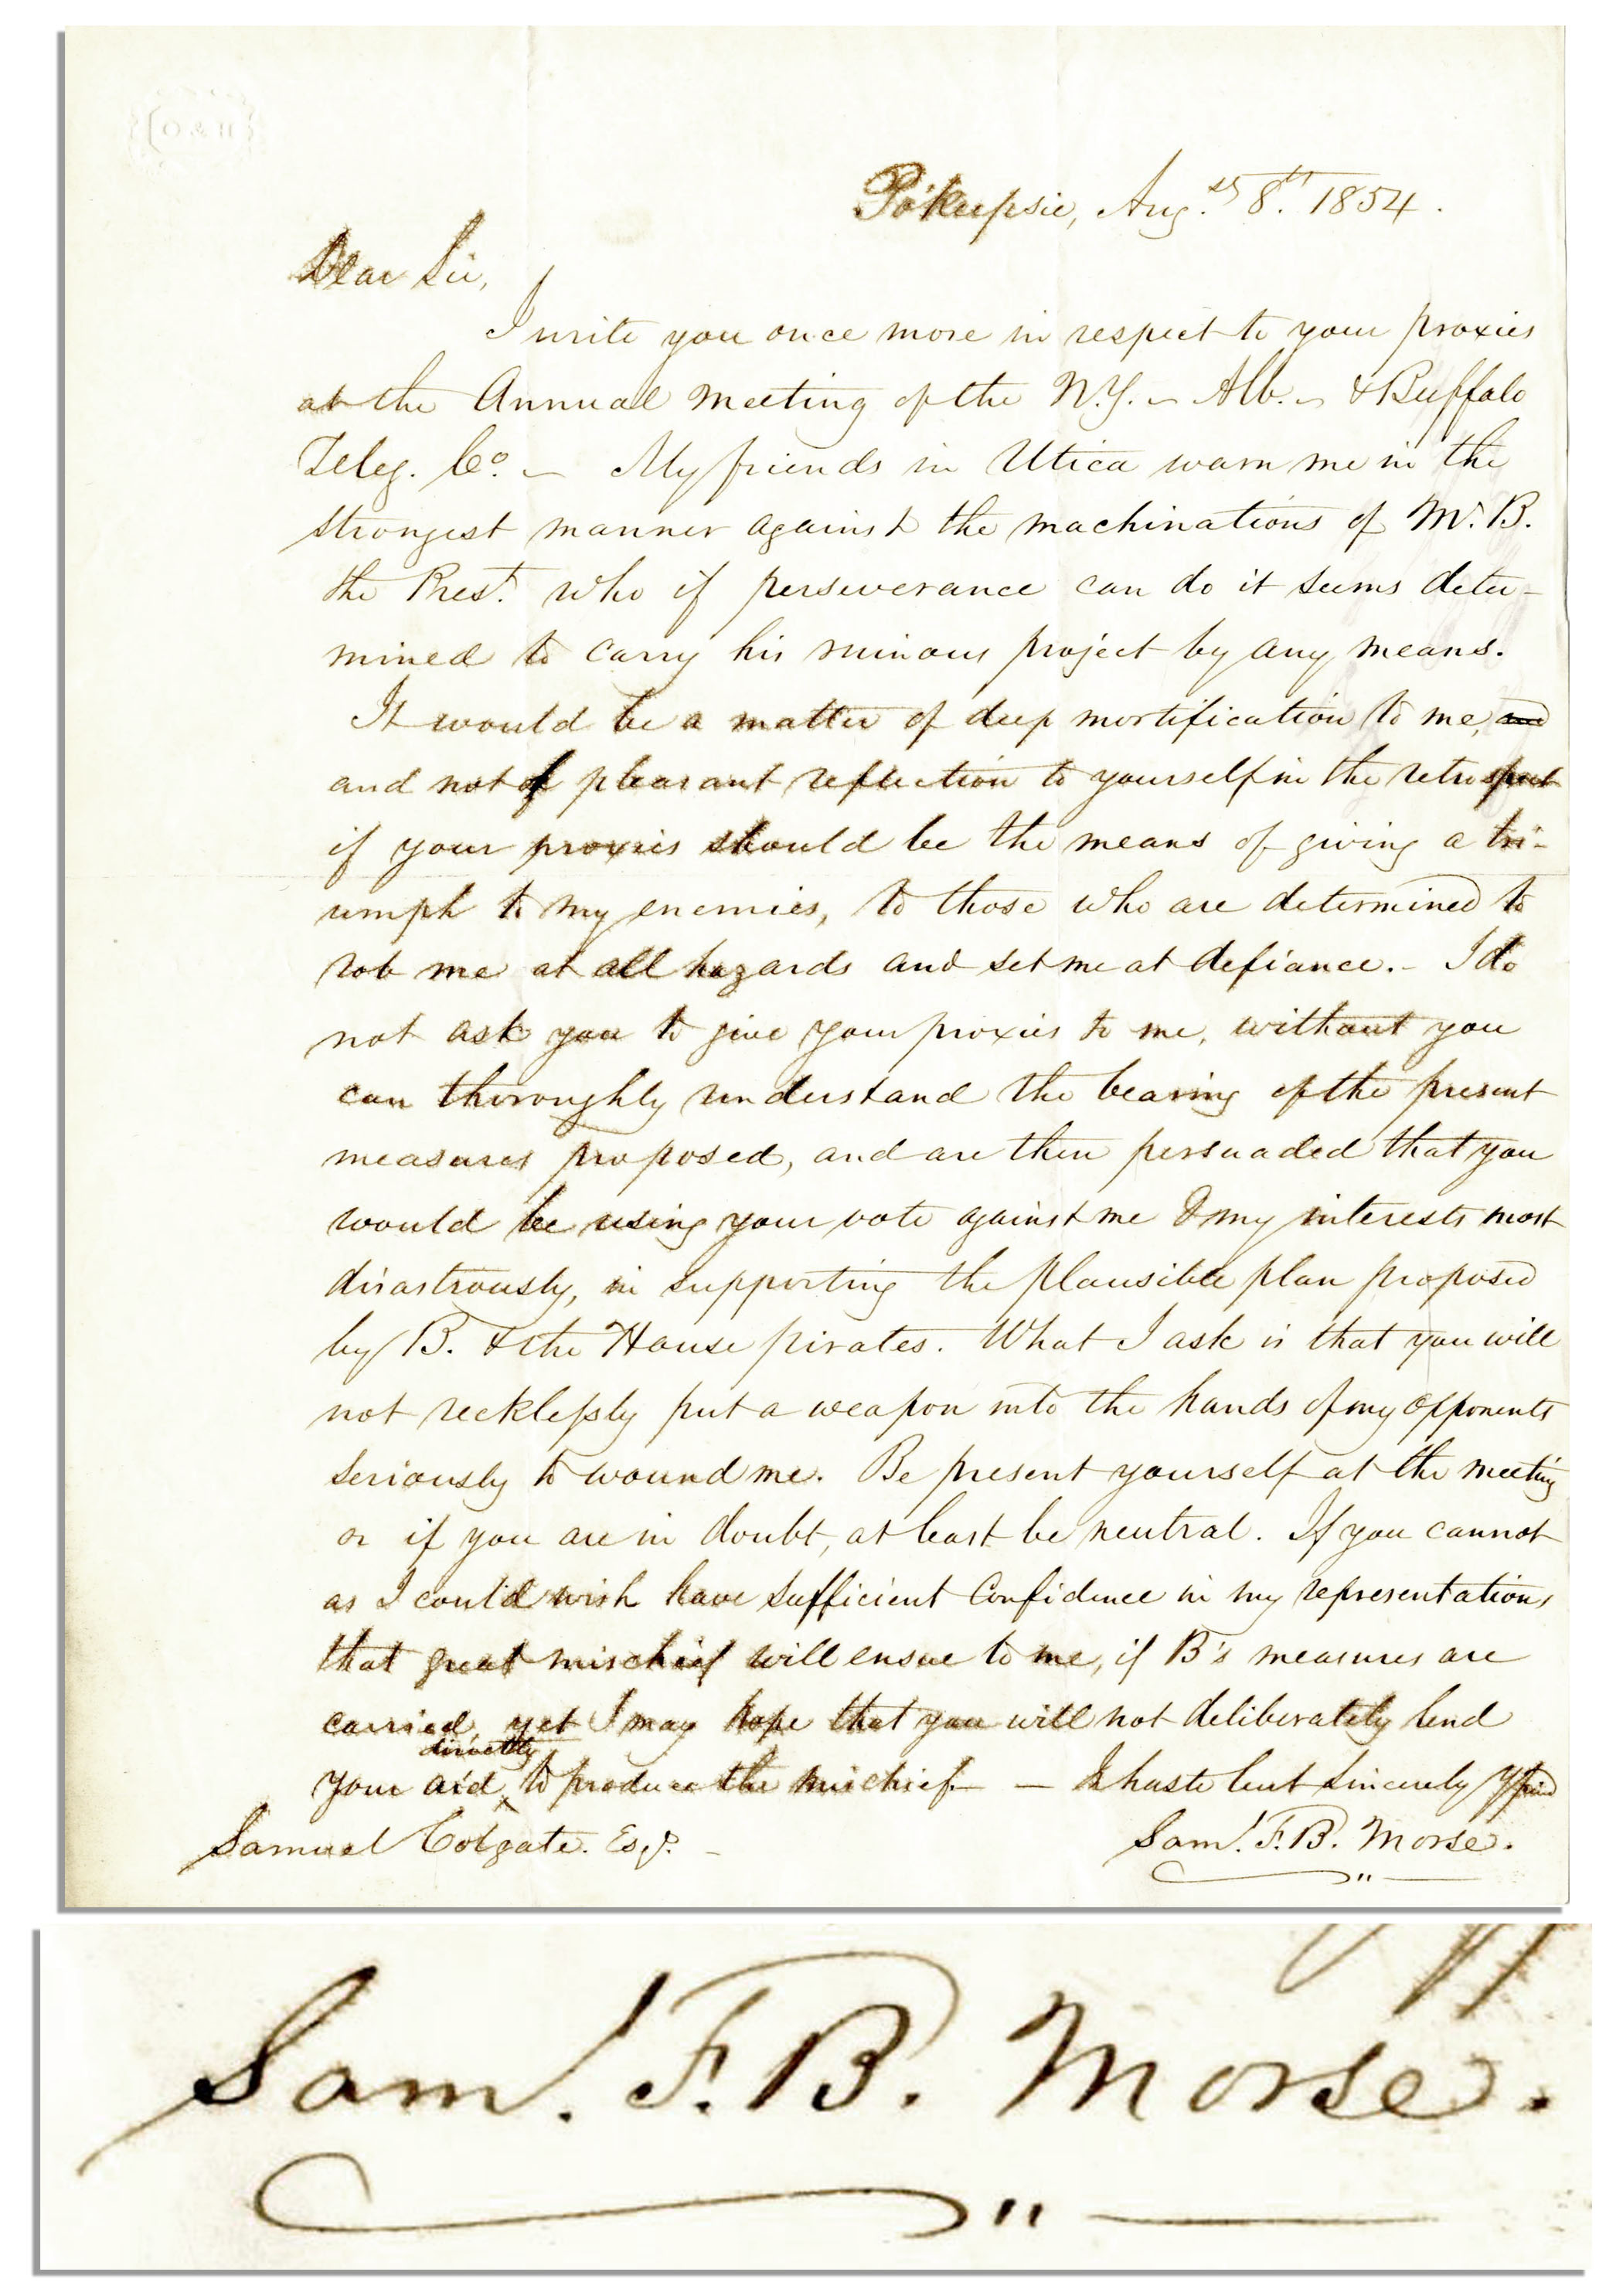 O & H
Po'keepsie, Aug.st 8.th 1854.
Dear Sir,
I write you once more in respect to your proxies
at the Annual meeting of the N.Y. – Alb. – & Buffalo
Teleg. Co. – My friends in Utica warn me in the
strongest manner against the machinations of Mr. B.
the Prest. who if perseverance can do it seems deter-
mined to carry his ruinous project by any means.
It would be a matter of deep mortification to me, and
and not of pleasant reflection to yourself in the retrospect
if your proxies should be the means of giving a tri-
umph to my enemies, to those who are determined to
rob me at all hazards and set me at defiance. – I do
not ask you to give your proxies to me, without you
can thoroughly understand the bearing of the present
measures proposed, and are then persuaded that you
would be using your vote against me & my interests most
disastrously, in supporting the plausible plan proposed
by B. & the House pirates. What I ask is that you will
not recklessly put a weapon into the hands of my opponents
seriously to wound me. Be present yourself at the meeting
or if you are in doubt, at least be neutral. If you cannot
as I could wish have sufficient confidence in my representations
that great mischief will ensue to me, if B's measures are
carried, yet I may hope that you will not deliberately lend
directly
your aid to produce the mischief – – In haste but sincerely Yr friend
Samuel Colgate. Esqr. –
Saml. F. B. Morse.
Saml. F. B. Morse.